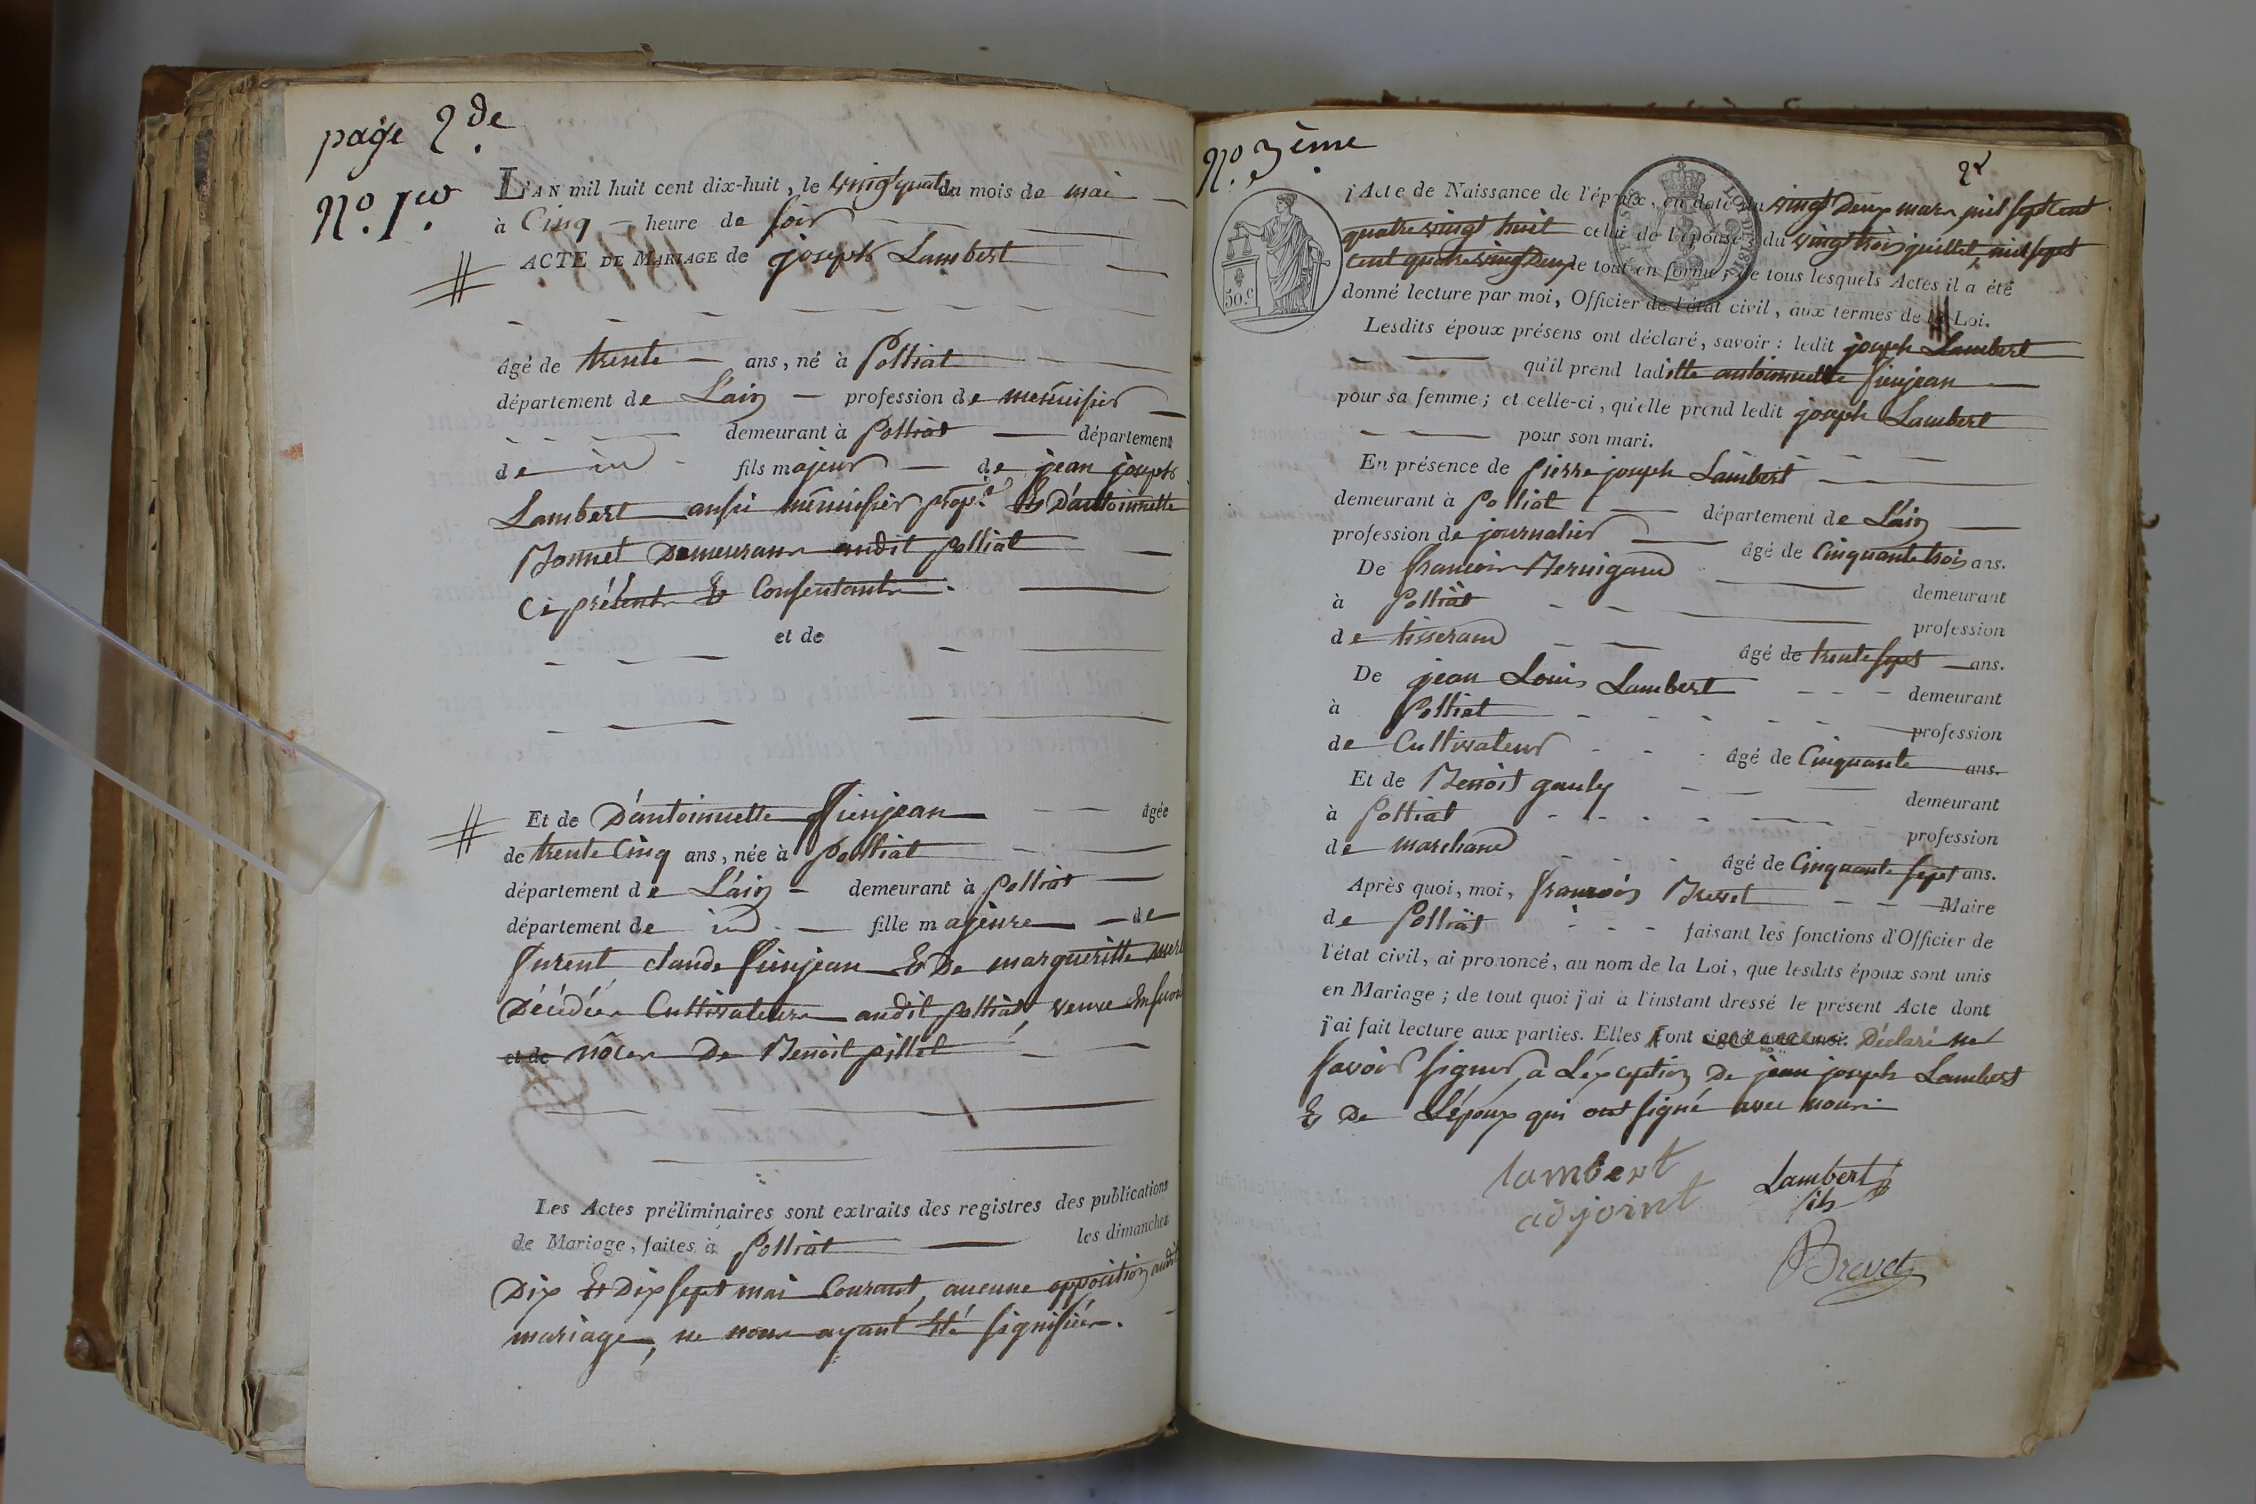 page 2de
No. 1er
L'AN mil huit cent dix-huit, le vingt quatre du mois de mai
à Cinq heure de soir
ACTE DE MARIAGE de joseph Lambert
âgé de trente ans, né à Polliat
département de L'ain profession de menuisier
demeurant à Polliat département
de id fils majeur de jean joseph
Lambert aussi menuisier prop.re & D'antoinette
Monnet Demeurans audit polliat
Ci présents & Consentants.
et de
Et de D'antoinette âgée
de trente Cinq ans, née à polliat
département de L'ain demeurant à polliat
département de id fille majeure de
furent claude & De margueritte
Décédés Cultivateurs audit polliat, veuve En
et de nôces De Benoit pillet
Les Actes préliminaires sont extraits des registres des publications
de Mariage, faites à Polliat les dimanches
Dix & Dix sept mai Courant, aucune opposition audit
mariage, ne nous ayant été signifiée.
No. 3ème
2
50.c
l'Acte de Naissance de l'époux, en date du vingt Deux mars mil sept cent
quatre vingt huit celui de l'épouse du vingt trois juillet mil sept
cent quatre vingt Deux le tout en forme; de tous lesquels Actes il a été
donné lecture par moi, Officier de l'état civil, aux termes de la Loi.
Lesdits époux présens ont déclaré, savoir: ledit joseph Lambert
qu'il prend laditte antoinette
pour sa femme; et celle-ci, qu'elle prend ledit joseph Lambert
pour son mari.
En présence de Pierre joseph Lambert
demeurant à Polliat département de L'ain
profession de journalier âgé de Cinquante trois ans.
De francois demeurant
à Polliat profession
de tisserand âgé de trente sept ans.
De jean Louis Lambert demeurant
à Polliat profession
de Cultivateur âgé de Cinquante ans.
Et de Benoit gauly demeurant
à Polliat profession
de marchand âgé de Cinquante sept ans.
Après quoi, moi, francois Brevet Maire
de Polliat faisant les fonctions d'Officier de
l'état civil, ai prononcé, au nom de la Loi, que lesdits époux sont unis
en Mariage; de tout quoi j'ai à l'instant dressé le présent Acte dont
j'ai fait lecture aux parties. Elles ont signé avec moi. Déclaré ne
savoir signer, à L'exception De jean joseph Lambert
& De L'époux qui ont signé avec nous.
lambert
adjoint
Lambert
fils
Brevet